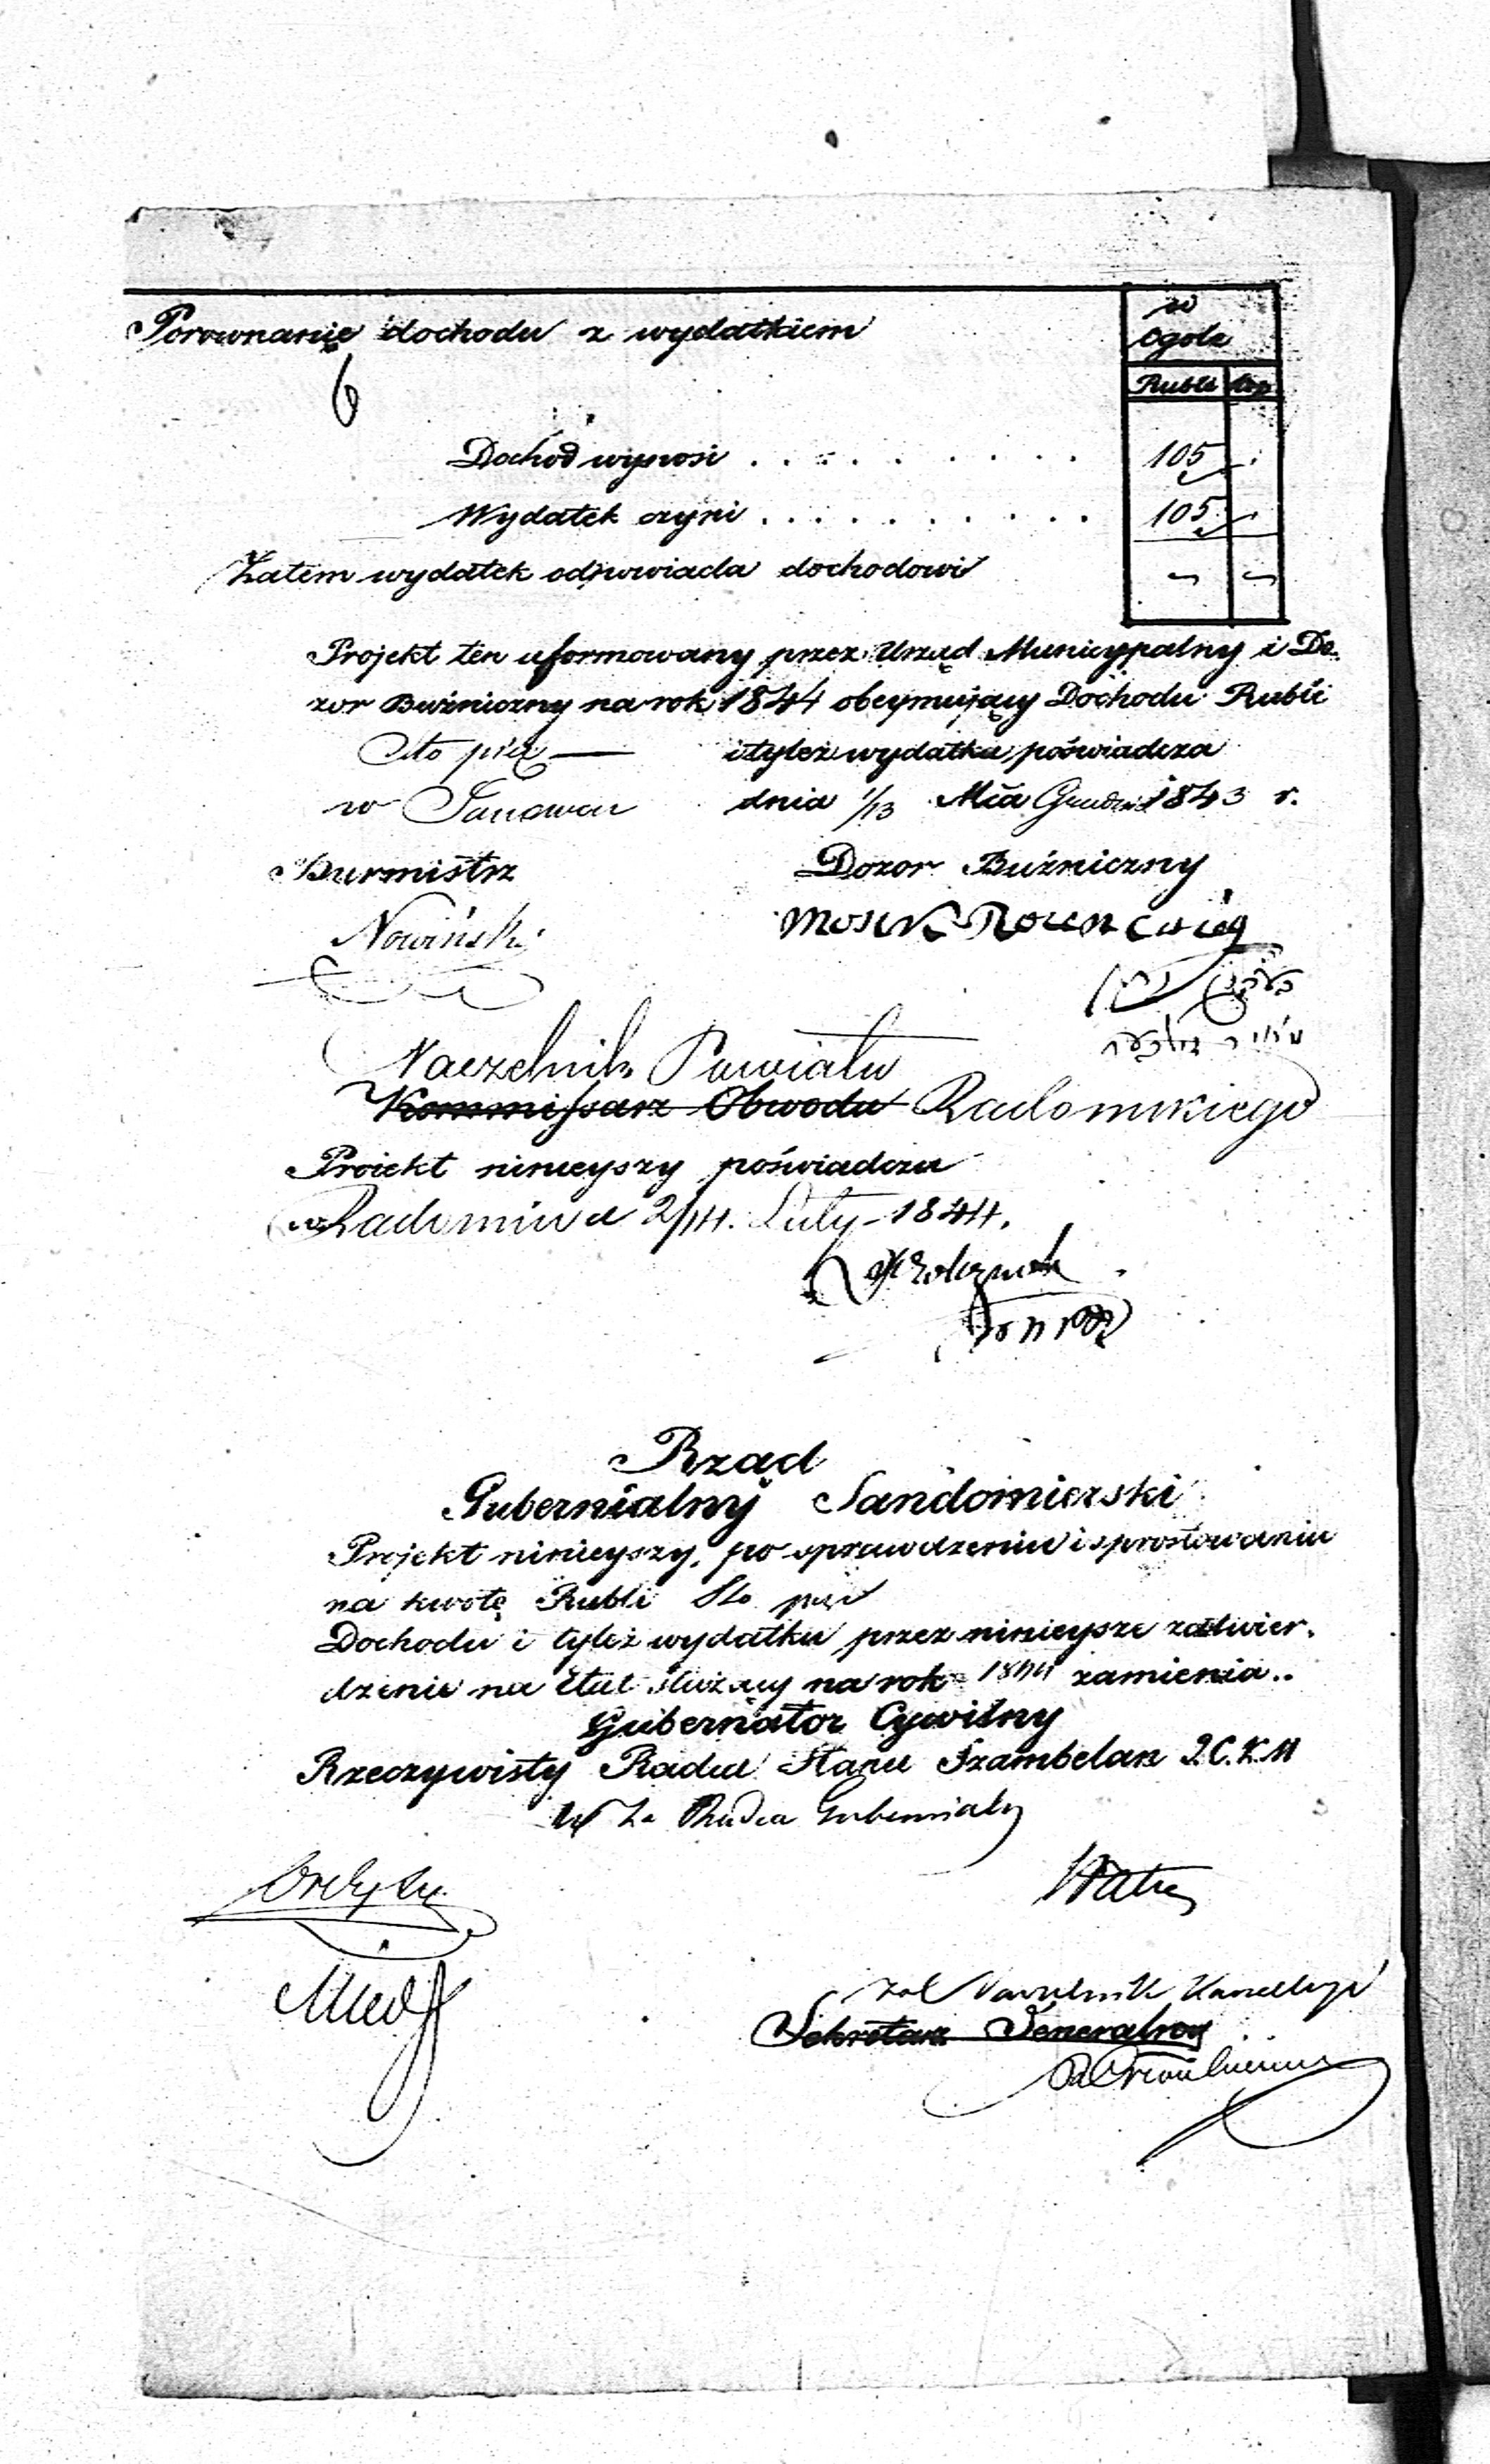 w
Porownanie dochodu z wydatkiem ogole
6
Rubli kop
Dochód wynosi . . . . . . . . . . 105
Wydatek czyni . . . . . . . . . . 105
Zatem wydatek odpowiada dochodowi
Projekt ten uformowany przez Urząd Municypalny i Do
zor Bużniczny na rok 1844 obeymujący Dochodu Rubli
Sto pięć — i tyleż wydatku poświadcza
w dnia 1/13 Mca Grudnia 1843 r.
Burmistrz Dozor Bużniczny
Nowiński Mosek
Naczelnik Powiatu
Kommissarz Obwodu Radomskiego
Proiekt ninieyszy poświadcza
w Radomiu d 2/14. Luty 1844.
Rząd
Gubernialny Sandomierski
Projekt ninieyszy, po sprawdzeniu i sprostowaniu
na kwotę Rubli Sto pięć
Dochodu i tyleż wydatku przez ninieysze zatwier.
dzenie na Etat służący na rok 1844 zamienia..
Gubernator Cywilny
Rzeczywisty Radca Stanu Szambelan J.C.K.M
W Z. Radca Gubernialny
Naczelnik Kancellaryi
Sekretarz Generalny